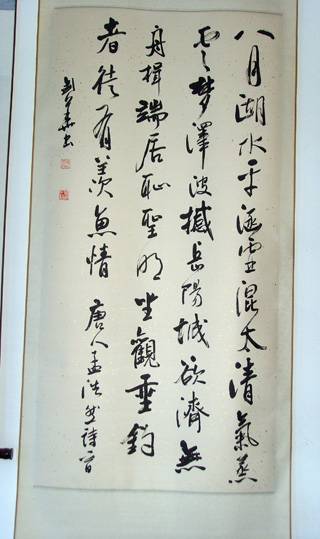 八月湖水平涵虛混太清氣蒸
雲夢澤波撼岳陽城欲濟無
舟楫端居恥聖明坐觀垂釣
者徒有羨魚情 唐人孟浩然詩